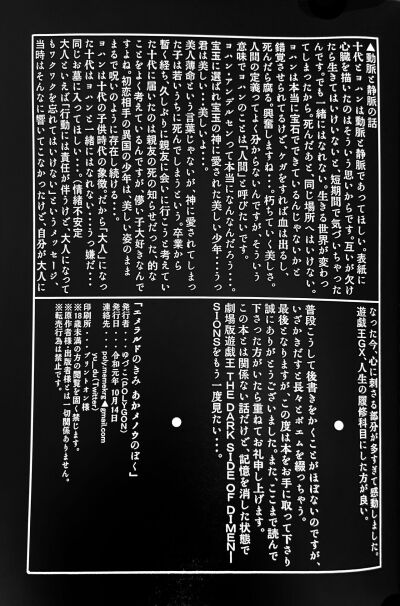 ▲動脈と静脈の話
十代とヨハンは動脈と静脈であってほしい。表紙に
心臓を描いたのはそういう思いからです。互いが欠け
たら生きてはいけないと、短期間で気づいちゃった
んです。でも一緒にはなれない。生きる世界が変わっ
てしまったから。死んだら、同じ場所へはいけない。
ヨハンは本当に宝石でできているんじゃないかと
錯覚させられてるけど、ケガをすれば血は出るし、
死んだら腐る。興奮しますね…。朽ちていく美しさ。
人間の定義ってよく分からないんですが、そういう
意味でヨハンのことは「人間」と呼びたいです。
ヨハン・アンデルセンって本当になんなんだろう…。
宝玉に選ばれ宝玉の神に愛された美しい少年…うっ
君は美しい…美しいよ…。
美人薄命という言葉じゃないが、神に愛されてしまっ
た子は若いうちに死んでしまうという。卒業から
暫く経ち、久しぶりに親友に会いに行こうと考えてい
た十代に届いたのは親友の死の知らせだった、的な
ことをよく考えてるんですが、儚い子大好きなんで
すよね。初恋相手の異国の少年は、美しい姿のまま
まるで呪いのように存在し続ける…。
ヨハンは十代の子供時代の象徴。だから「大人」になっ
た十代はヨハンと一緒にはなれない…うっ嫌だ…
同じお墓に入ってほしい…。(情緒不安定
大人といえば「行動には責任が伴うけど、大人になって
もワクワクを忘れてはいけない」というメッセージ、
当時はそんなに響いてこなかったけど、自分が大人に
なった今、心に刺さる部分が多すぎて感動しました。
遊戯王GX、人生の履修科目にした方が良い。
普段こうして後書きをかくことがほぼないのですが、
いざかきだすと長々とポエムを綴っちゃう。
最後となりますが、この度は本をお手に取って下さり
誠にありがとうございました。また、ここまで読んで
下さった方がいたら重ねてお礼申し上げます。
この本とは関係ない話だけど、記憶を消した状態で
劇場版遊戯王THE DARK SIDE OF DIMEN
SIONSをもう一度見たい…。
「エメラルドのきみ あかメノウのぼく」
発行者・・・ゆづ(POLYGON)
発行日・・・令和元年10月14日
連絡先・・・poly.memekrg▲gmail.com
印刷所・・・プリントオン様
※18歳未満の方の閲覧を固く禁じます。
※原作者様・出版者様とは一切関係ありません。
※転売行為は禁止です。